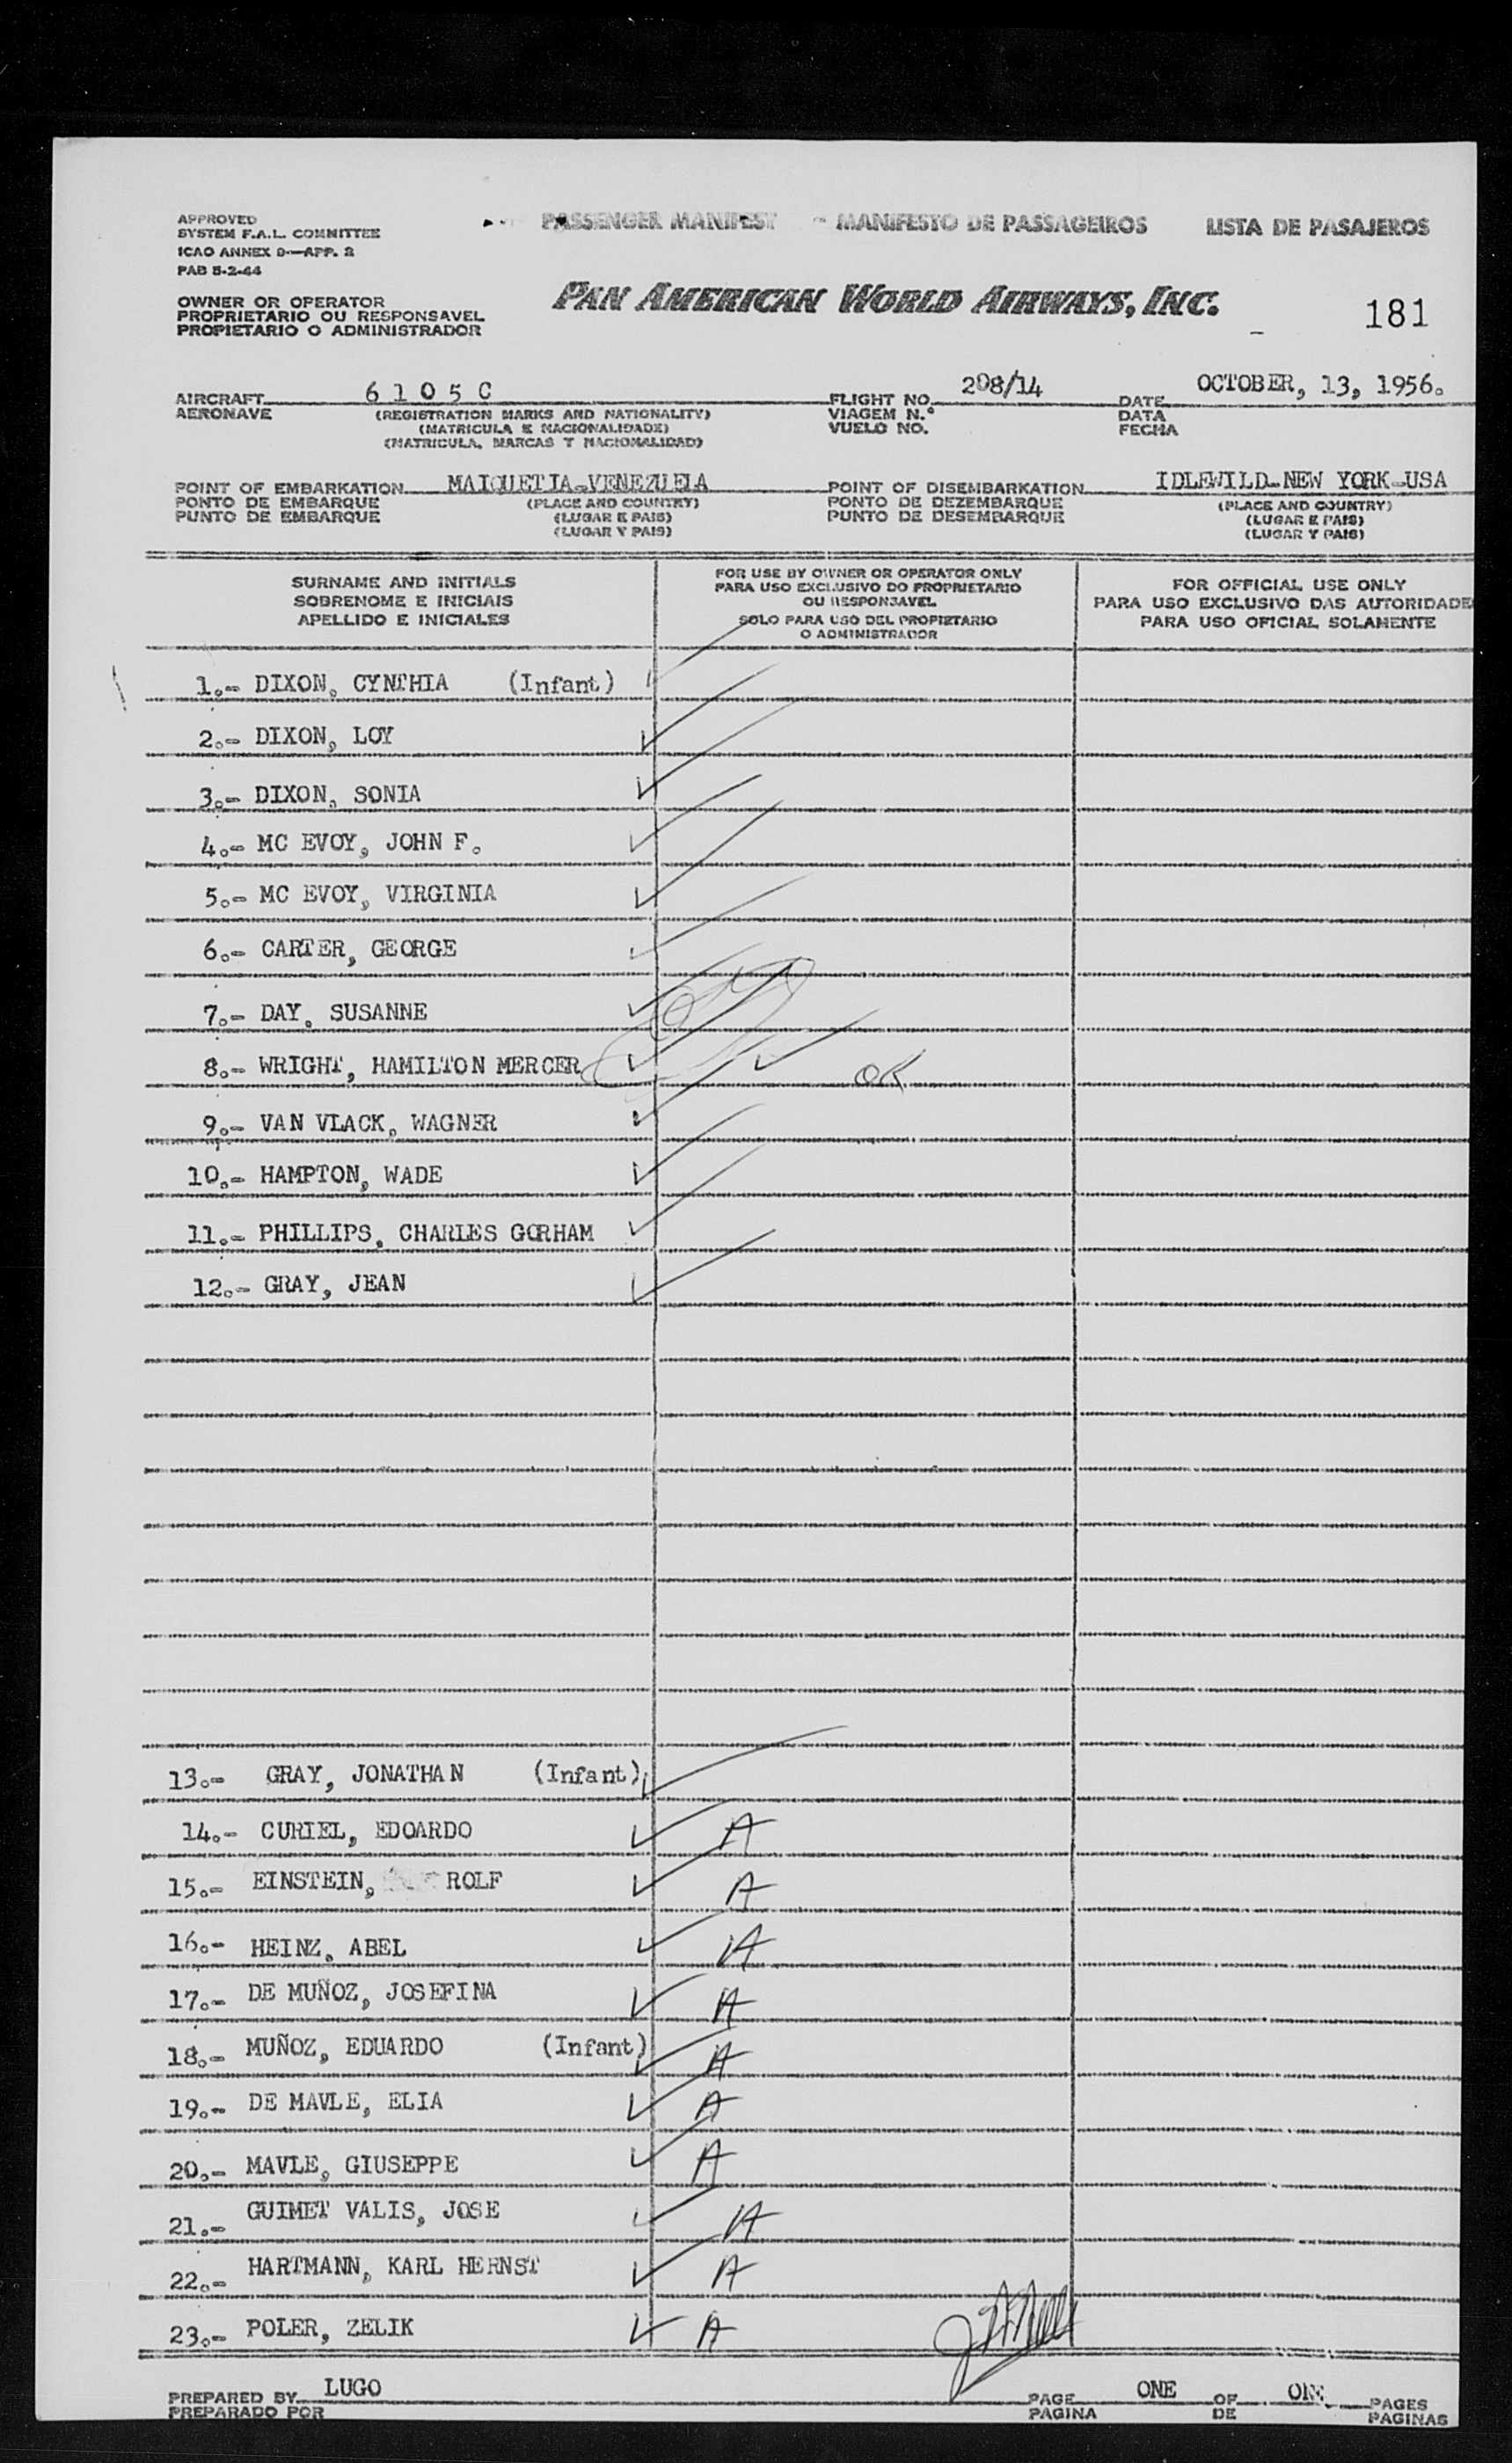 APPROVED
SYSTEM F.A.L. COMMITTEE
ICAO ANNEX 9—APP. 2
PAB 5-2-44
PASSENGER MANIFEST MANIFESTO DE PASSAGEIROS LISTA DE PASAJEROS
OWNER OR OPERATOR
PROPRIETARIO OU RESPONSAVEL
PROPIETARIO O ADMINISTRADOR
PAN AMERICAN WORLD AIRWAYS, INC.
181
AIRCRAFT 6105C FLIGHT NO. 208/14 DATE OCTOBER, 13, 1956.
AERONAVE (REGISTRATION MARKS AND NATIONALITY) VIAGEM N.° DATA
(MATRICULA E NACIONALIDADE) VUELO NO. FECHA
(MATRICULA, MARCAS Y NACIONALIDAD)
POINT OF EMBARKATION MAIQUETIA-VENEZUELA POINT OF DISEMBARKATION IDLEWILD-NEW YORK-USA
PONTO DE EMBARQUE (PLACE AND COUNTRY) PONTO DE DEZEMBARQUE (PLACE AND COUNTRY)
PUNTO DE EMBARQUE (LUGAR E PAIS) PUNTO DE DESEMBARQUE (LUGAR E PAIS)
(LUGAR Y PAIS) (LUGAR Y PAIS)
SURNAME AND INITIALS
SOBRENOME E INICIAIS
APELLIDO E INICIALES
FOR USE BY OWNER OR OPERATOR ONLY
PARA USO EXCLUSIVO DO PROPRIETARIO
OU RESPONSAVEL
SOLO PARA USO DEL PROPIETARIO
O ADMINISTRADOR
FOR OFFICIAL USE ONLY
PARA USO EXCLUSIVO DAS AUTORIDADE
PARA USO OFICIAL SOLAMENTE
1.- DIXON, CYNTHIA (Infant)
2.- DIXON, LOY
3.- DIXON, SONIA
4.- MC EVOY, JOHN F.
5.- MC EVOY, VIRGINIA
6.- CARTER, GEORGE
7.- DAY, SUSANNE
8.- WRIGHT, HAMILTON MERCER OK
9.- VAN VLACK, WAGNER
10.- HAMPTON, WADE
11.- PHILLIPS, CHARLES GORHAM
12.- GRAY, JEAN
13.- GRAY, JONATHAN (Infant)
14.- CURIEL, EDOARDO A
15.- EINSTEIN, ROLF A
16.- HEINZ, ABEL A
17.- DE MUÑOZ, JOSEFINA A
18.- MUÑOZ, EDUARDO (Infant) A
19.- DE MAVLE, ELIA A
20.- MAVLE, GIUSEPPE A
21.- GUIMET VALIS, JOSE A
22.- HARTMANN, KARL HERNST A
23.- POLER, ZELIK A
PREPARED BY LUGO PAGE ONE OF ONE PAGES
PREPARADO POR PAGINA DE PAGINAS